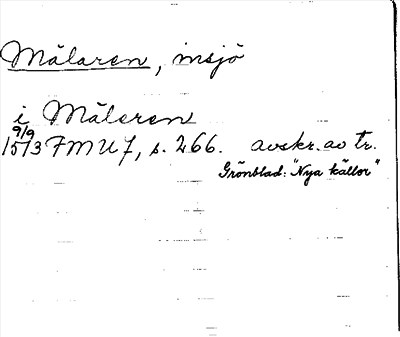 Mälaren, insjö
i Mäleren
9/9
1513 FMU 7, s. 266. avskr. av tr.
Grönblad: "Nya källor"